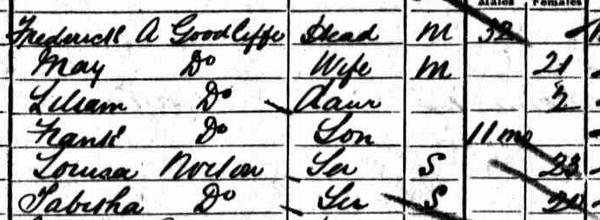 Males Females
Frederick A Goodliffe Head M 32
May Do Wife M 21
Liliam Do Daur 2
Frank Do Son 11 mo
Louisa Norton Ser S 23
Tabisha Do Ser S